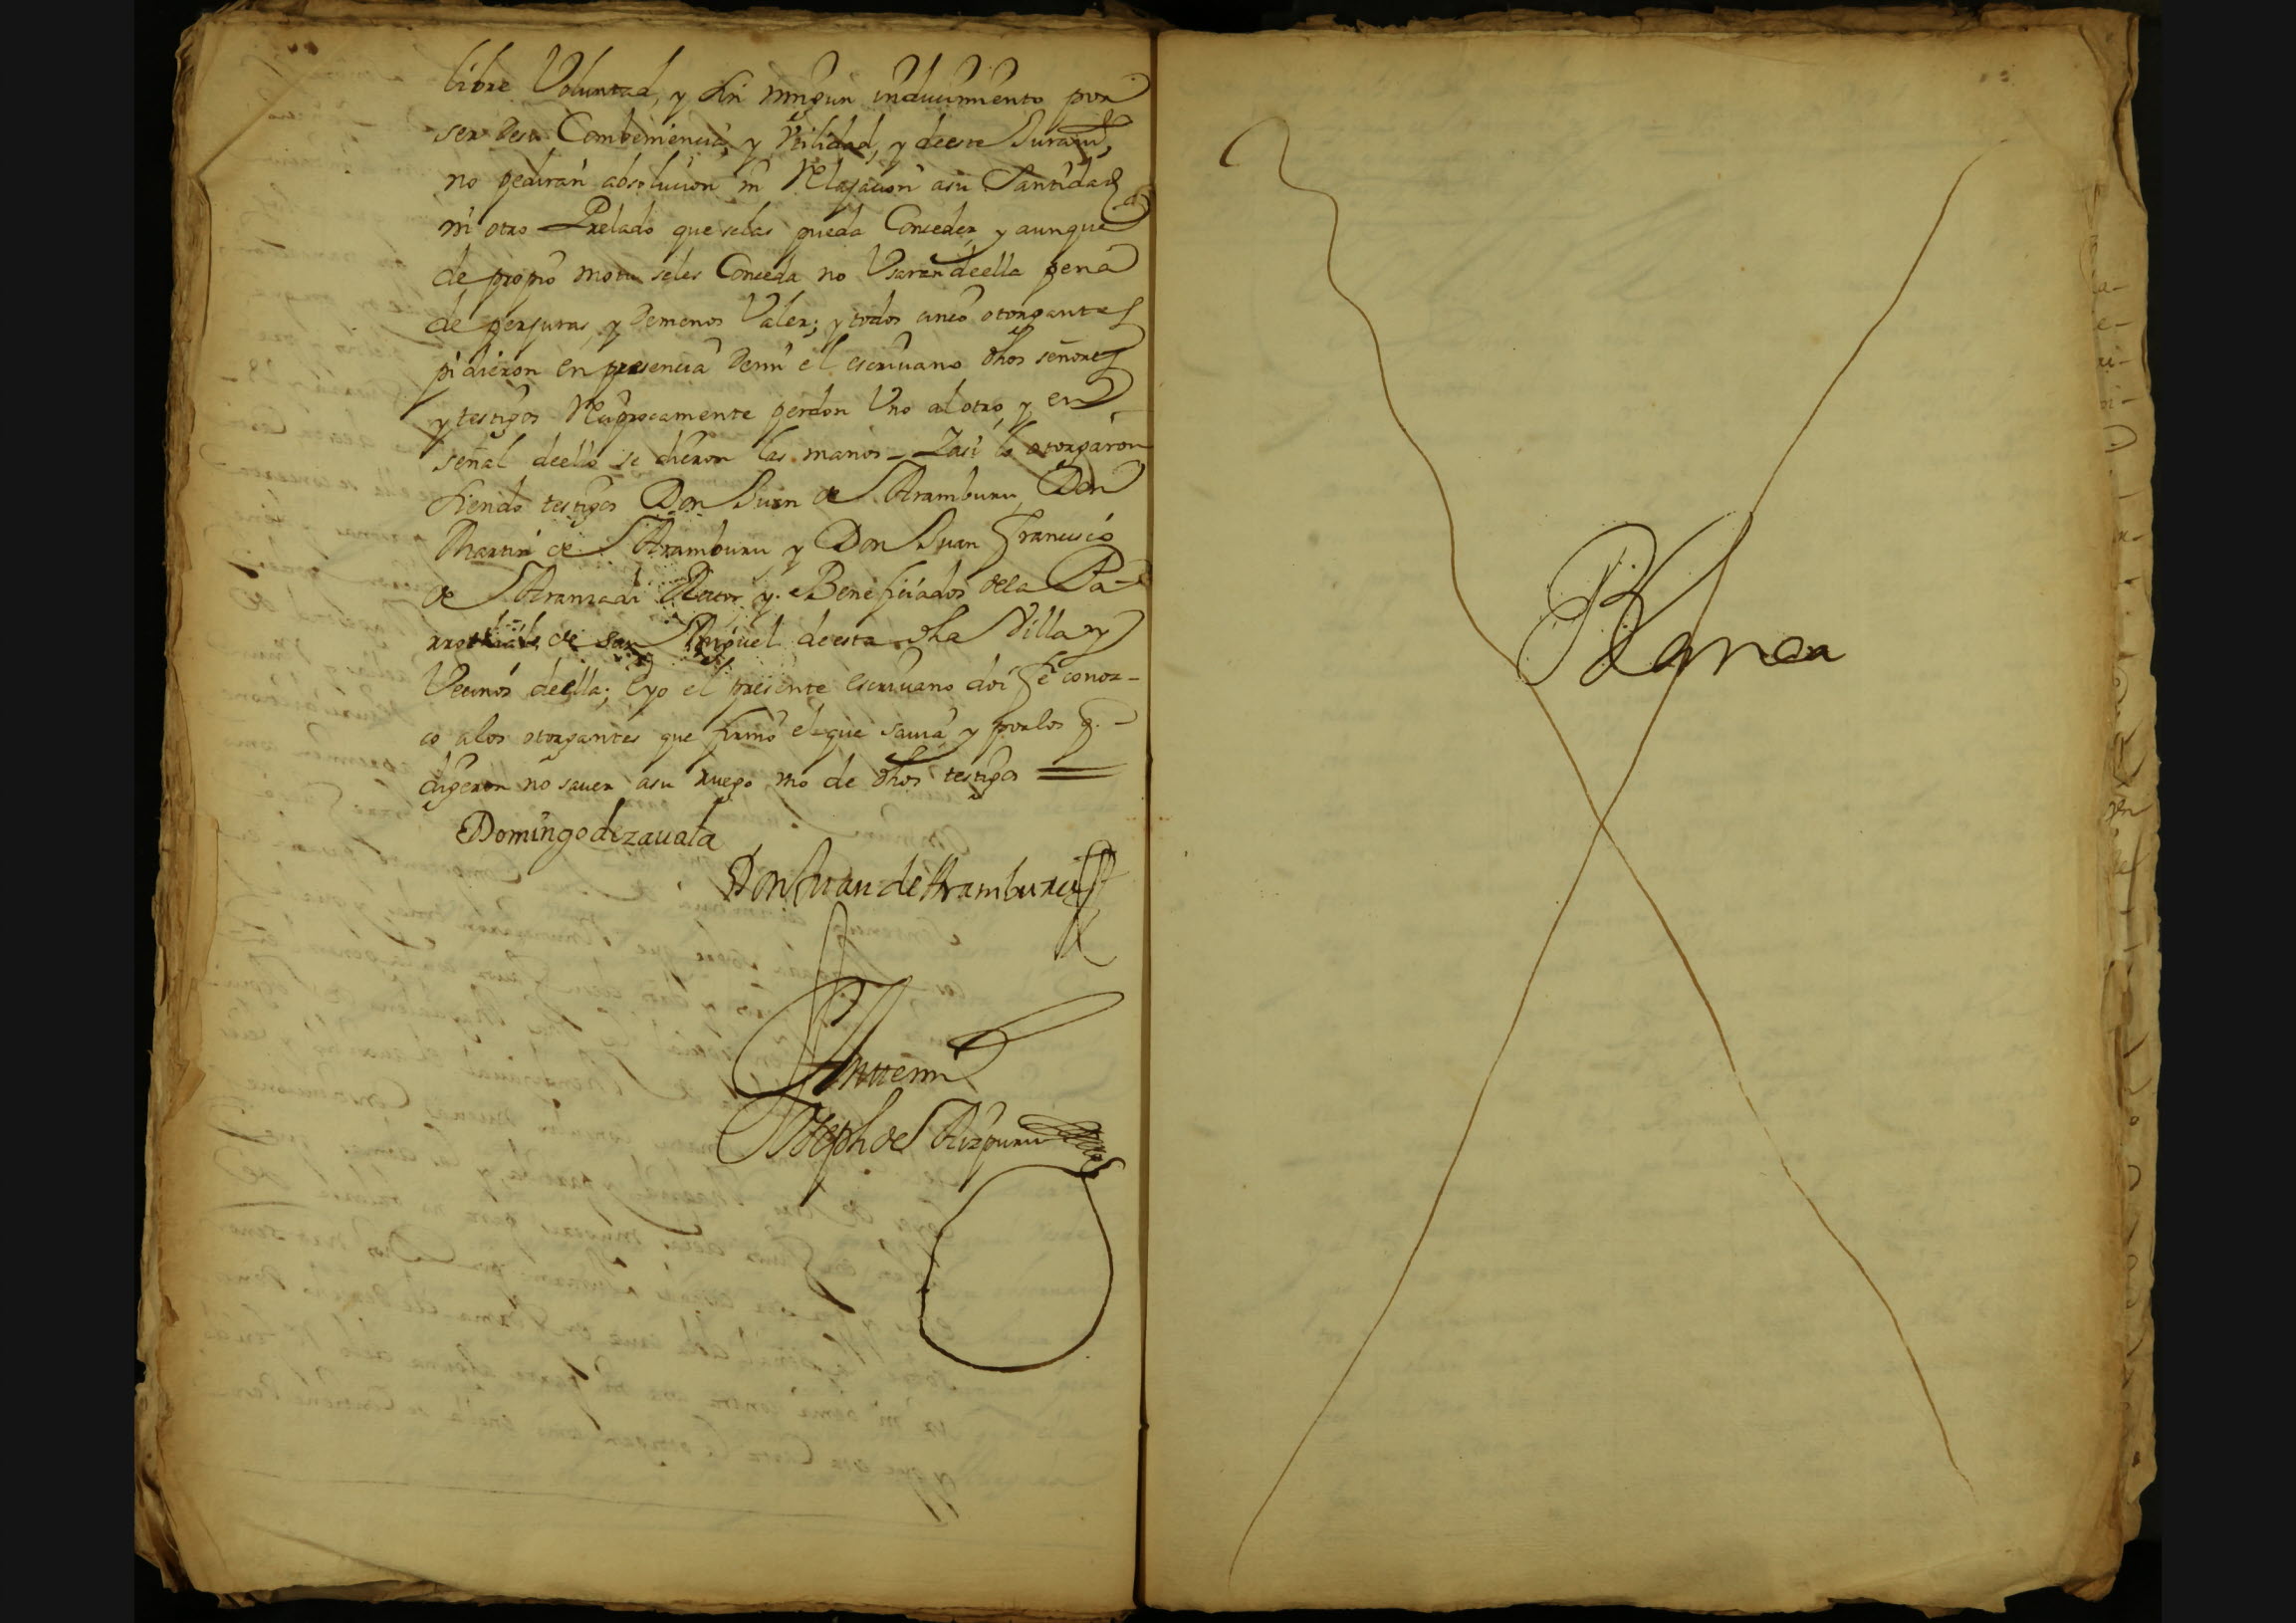 libre Voluntad, y sin ningun inducimiento por
ser desu Combeniencia, y Utilidad, y deeste Juramto,
no pediran absolucion ni Relajacion asu Santidad
ni otro Prelado que selas pueda Conceder, y aunque
de propio motu seles Conceda no Usaran deella pena
de perjuras, y demenos Valer; y todos cinco otorgantes
pidieron en presencia demi el escriuano dhos señores
y testigos Reciprocamente perdon Uno al otro, y en
señal deello se dieron las manos = Iasi lo otorgaron
siendo testigos Don Juan de Aramburu, Don
Martin de Aramburu y Don Juan Francisco
de Aranzadi Rector y Beneficiados dela Pa-
rrochial de san Miguel deesta dha Villa y
Vecinos deella; Eyo el presente escriuano doi fe conoz-
co alos otorgantes que firmo el que sauia y porlos q.
digeron no sauer asu ruego uno de dhos testigos =
Domingo de zauala
Don Juan de Aramburu
Antemi
Joseph de Aizpuru
Blanca